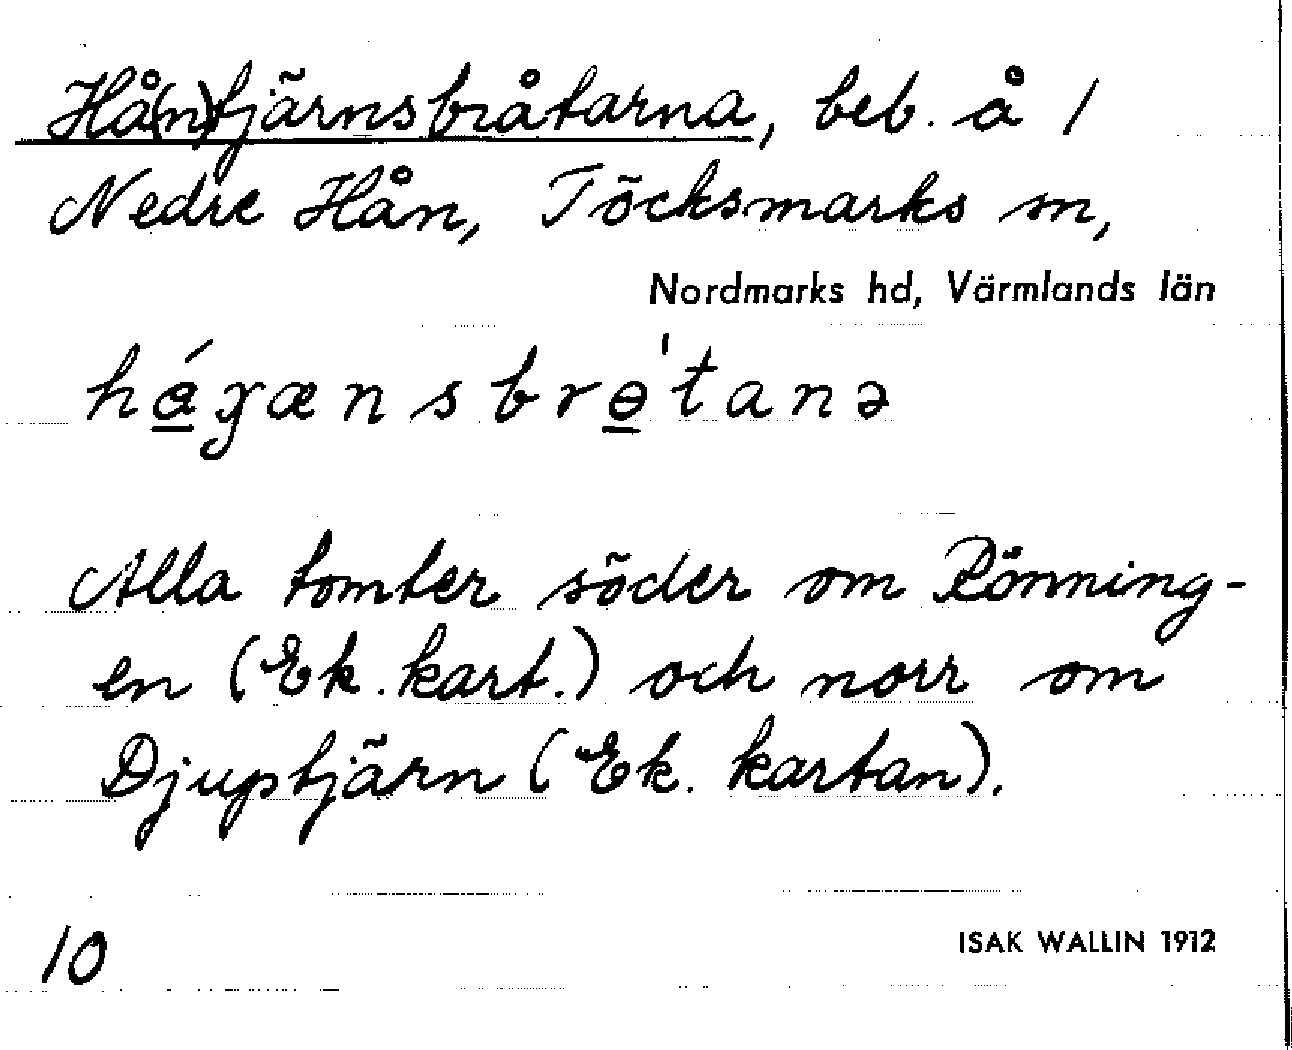 Hå(n)tjärnsbråtarna, beb. å 1
Nedre Hån, Töcksmarks sn,
Nordmarks hd, Värmlands län
Alla tomter söder om Rönning-
en (Ek. kart.) och norr om
Djuptjärn (Ek. kartan).
10
ISAK WALLIN 1912